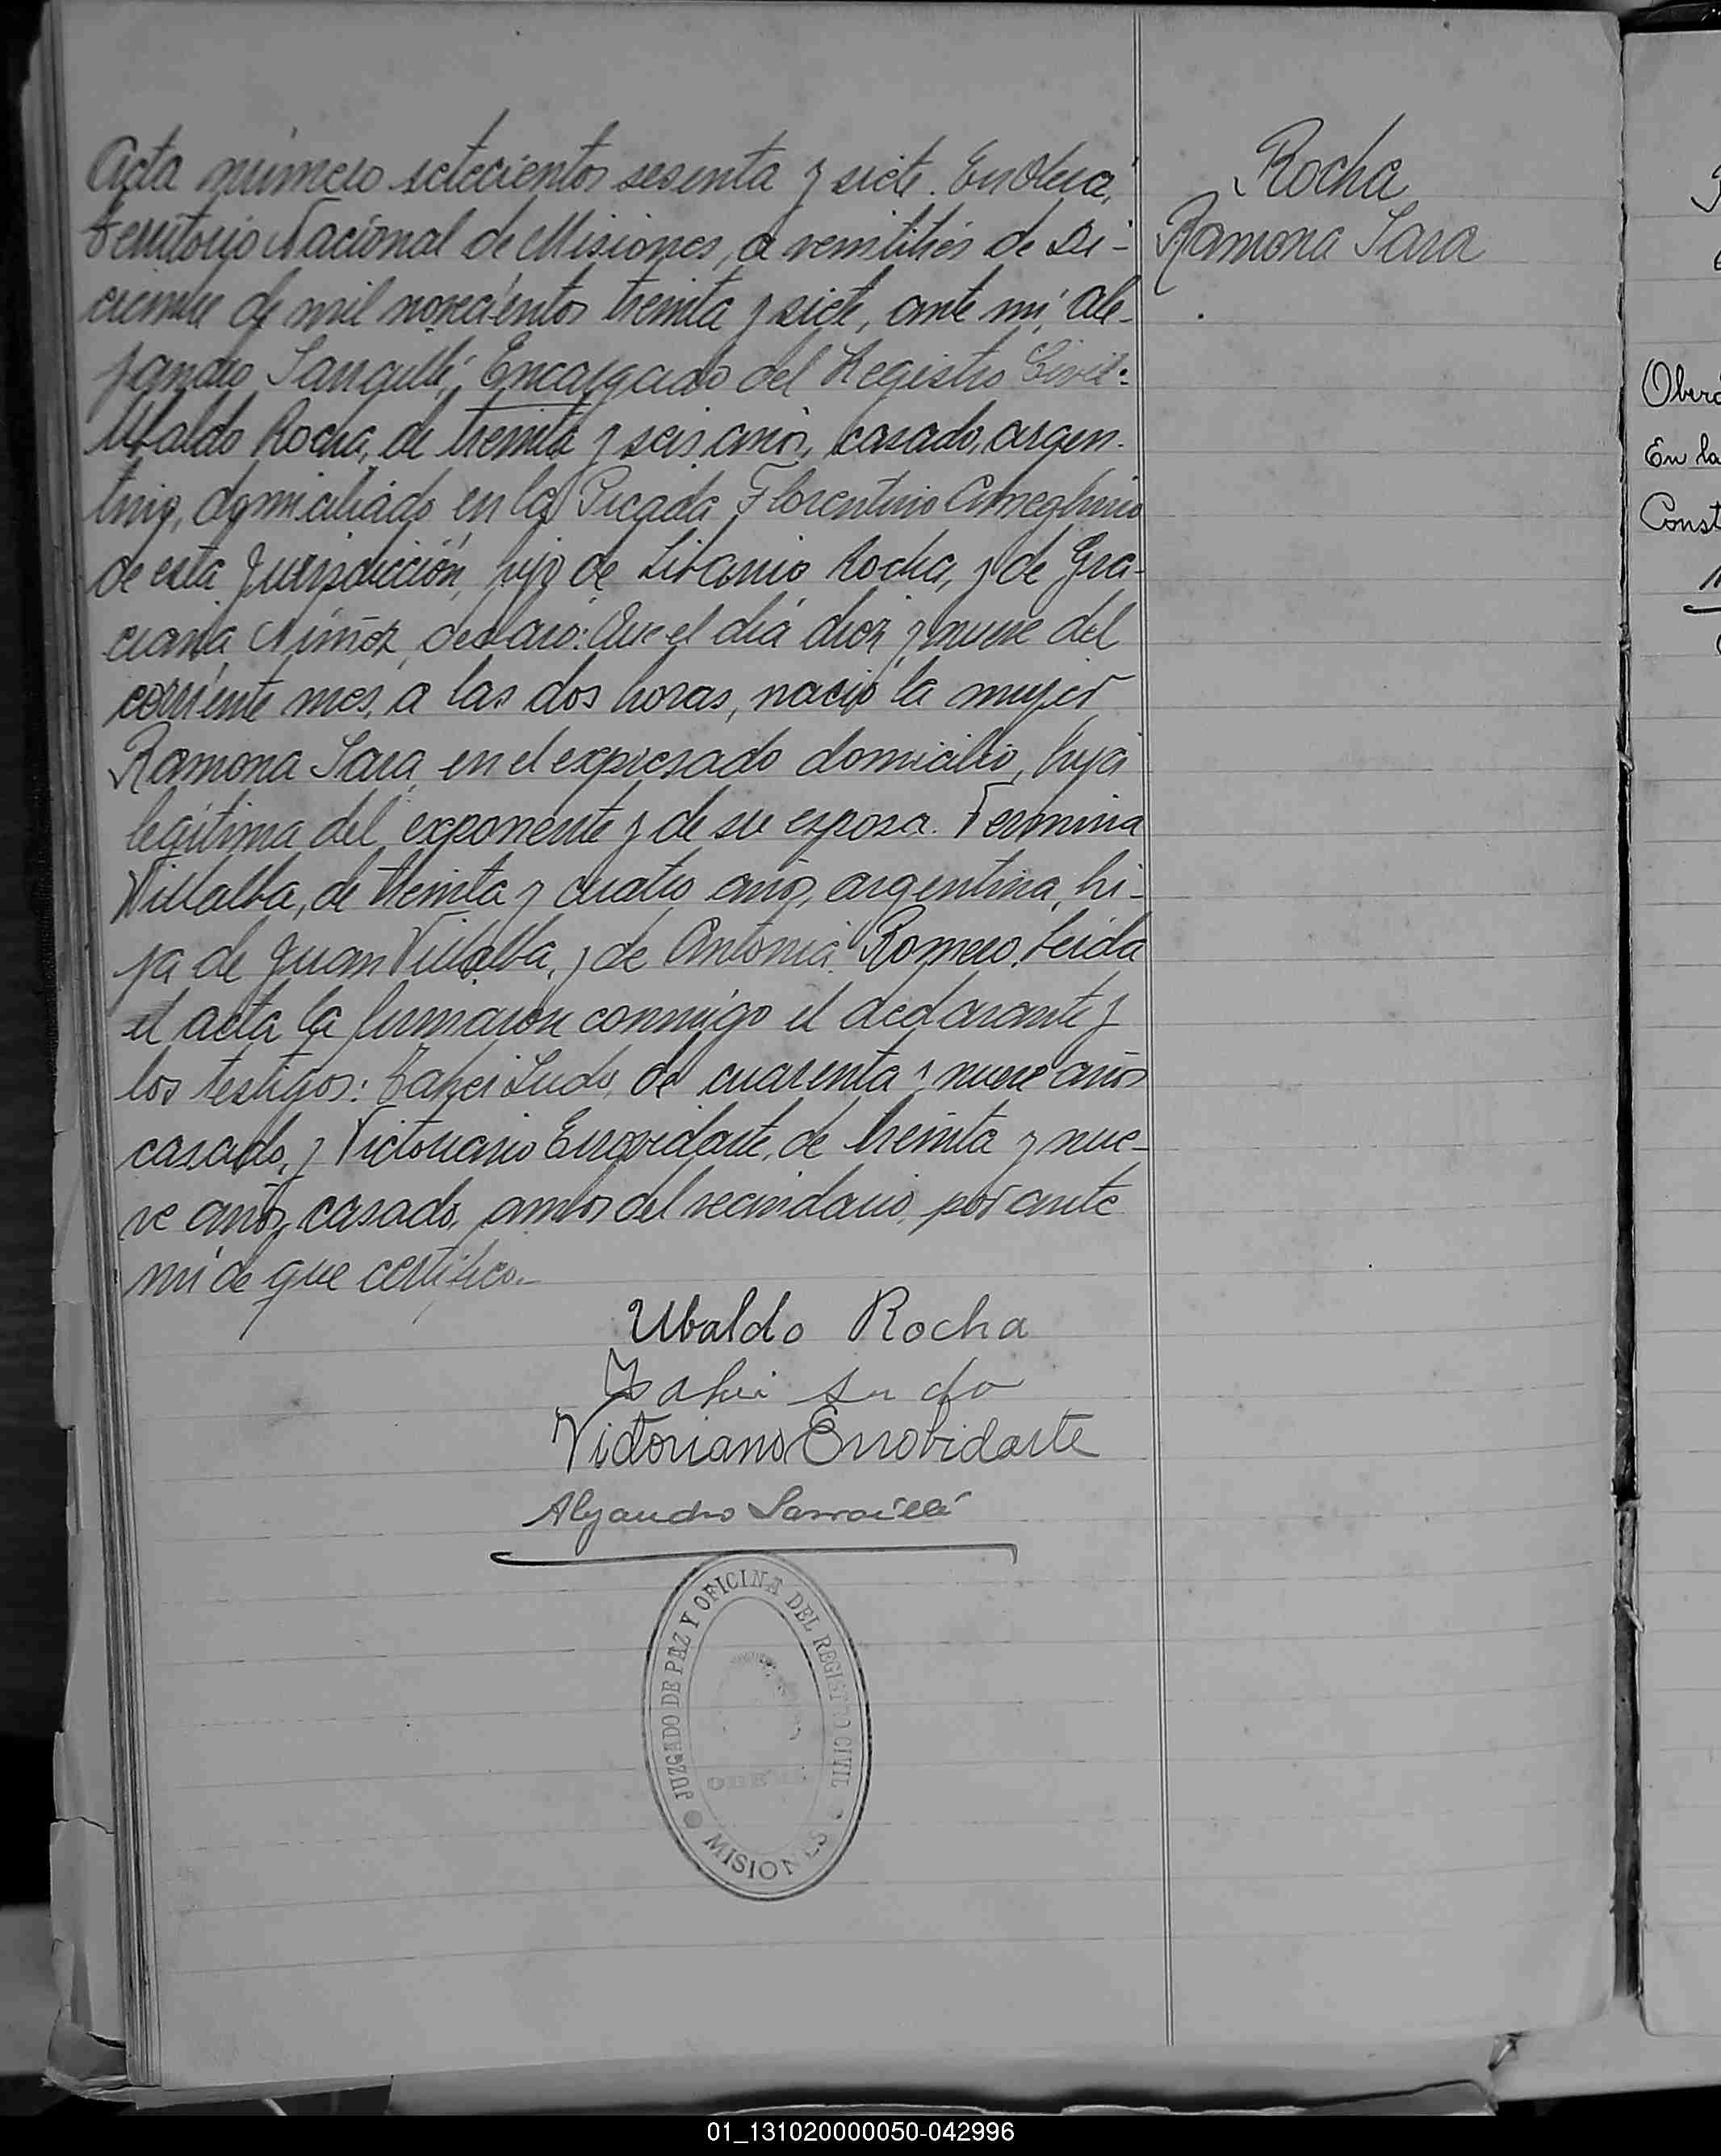 Acta número setecientos sesenta y siete. En Oberá,
territorio Nacional de Misiones, a veintitrés de Di-
ciembre de mil novecientos treinta y siete, ante mí, Ale-
jandro Sarraillé, Encargado del Registro Civil:
Ubaldo Rocha, de treinta y seis años, casado, argen-
tino, domiciliado en la Picada Florentino Ameghino
de esta Jurisdicción, hijo de Libanio Rocha, y de Gra-
ciana Núñez, declaró: Que el día diez y nueve del
corriente mes, a las dos horas, nació la mujer
Ramona Sara, en el expresado domicilio, hija
legítima del exponente y de su esposa. Fermina
Villalba, de treinta y cuatro años, argentina, hi-
ja de Juan Villalba, y de Antonia Romero. Leida
el acta la firmaron conmigo el declarante y
los testigos: Sudo, de cuarenta y nueve años
casado, y Victoriano Errovidarte, de treinta y nue-
ve años, casado, ambos del vecindario, por ante
mí de que certifico.-
Rocha
Ramona Sara
Ubaldo Rocha
Sudo
Victoriano Errobidarte
Alejandro Sarraillé
JUZGADO DE PAZ Y OFICINA DEL REGISTRO CIVIL
MISIONES
Oberá
En la
Const
01_131020000050-042996